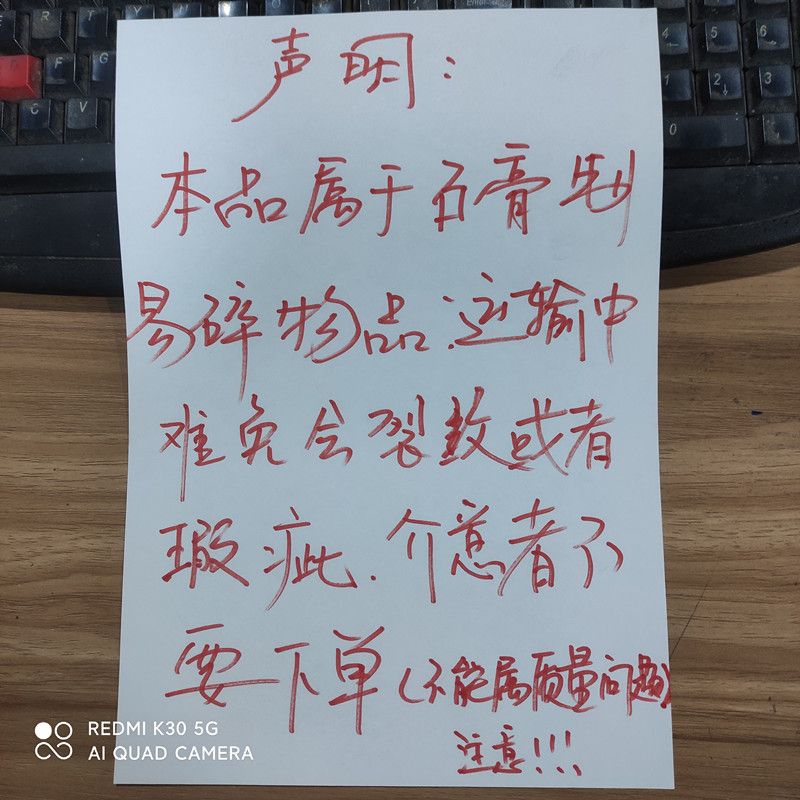 声明：
本品属于石膏制
易碎物品.运输中
难免会裂纹或者
瑕疵.介意者不
要下单(不能属质量问题)
注意!!!
REDMI K30 5G
AI QUAD CAMERA
F
G
C
V
4
5
6
1
2
3
0
Enter